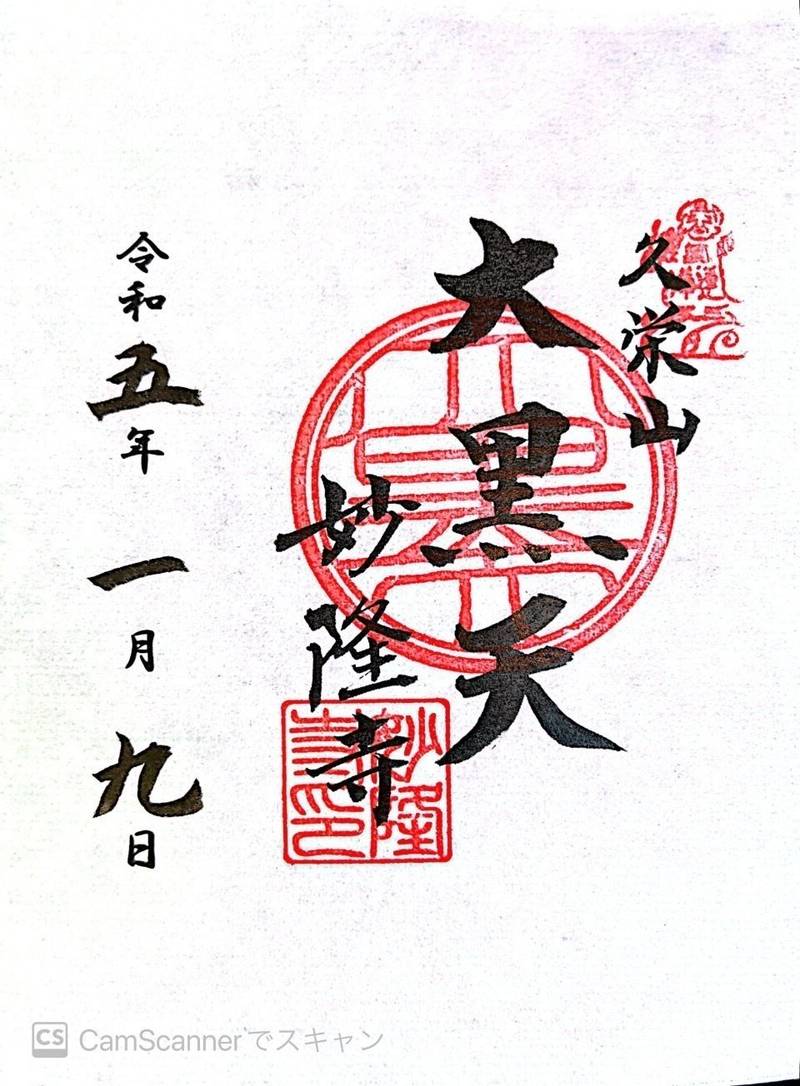 久栄山
大黒天
妙隆寺
妙隆
寺印
令和五年 一月 九日
CS CamScannerでスキャン